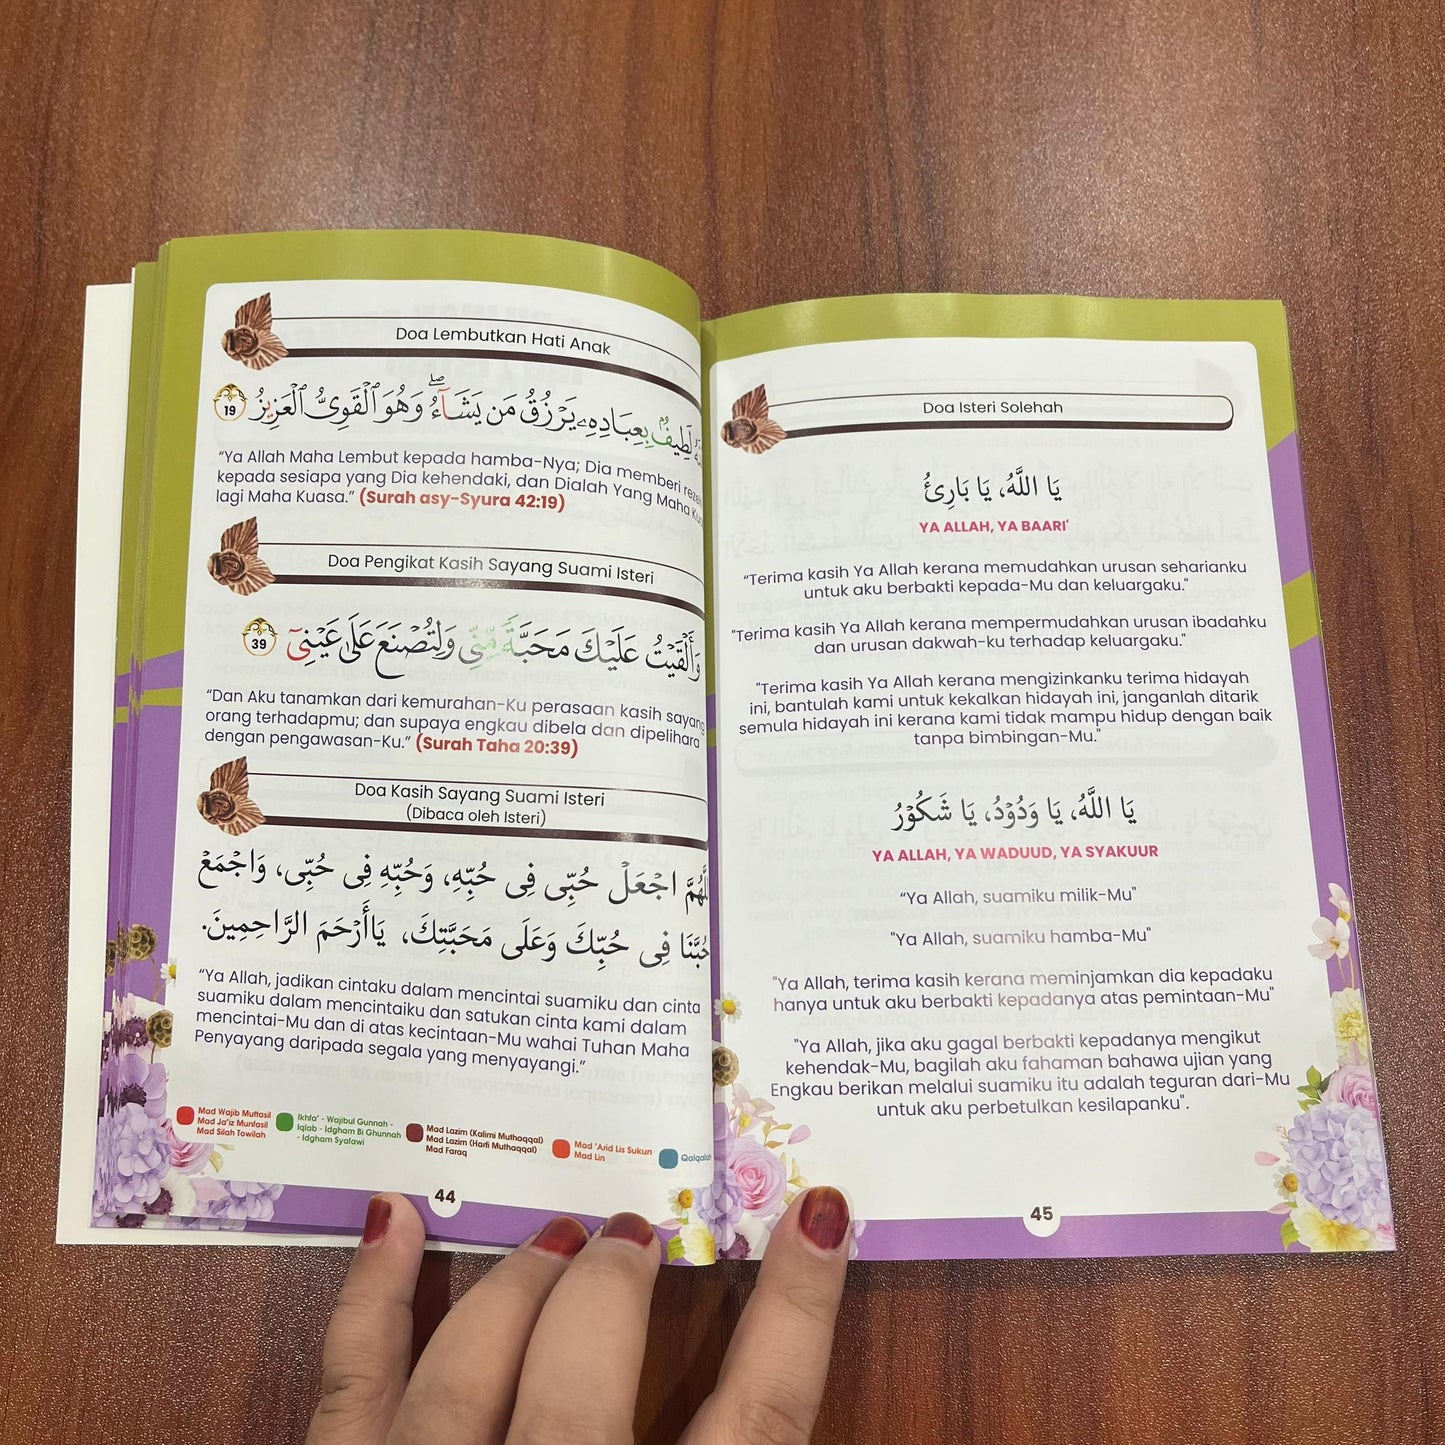 Doa Lembutkan Hati Anak
لَطِيفٌۢ بِعِبَادِهِۦ يَرْزُقُ مَن يَشَآءُ ۖ وَهُوَ ٱلْقَوِىُّ ٱلْعَزِيزُ 19
“Ya Allah Maha Lembut kepada hamba-Nya; Dia memberi
kepada sesiapa yang Dia kehendaki, dan Dialah Yang Maha
lagi Maha Kuasa.” (Surah asy-Syura 42:19)
Doa Pengikat Kasih Sayang Suami Isteri
وَأَلْقَيْتُ عَلَيْكَ مَحَبَّةً مِّنِّى وَلِتُصْنَعَ عَلَىٰ عَيْنِىٓ 39
“Dan Aku tanamkan dari kemurahan-Ku perasaan kasih sayang
orang terhadapmu; dan supaya engkau dibela dan dipelihara
dengan pengawasan-Ku.” (Surah Taha 20:39)
Doa Kasih Sayang Suami Isteri
(Dibaca oleh Isteri)
اجْعَلْ حُبِّى فِى حُبِّهِ، وَحُبِّهِ فِى حُبِّى، وَاجْمَعْ
حُبَّنَا فِى حُبِّكَ وَعَلَى مَحَبَّتِكَ، يَاأَرْحَمَ الرَّاحِمِينَ.
“Ya Allah, jadikan cintaku dalam mencintai suamiku dan cinta
suamiku dalam mencintaiku dan satukan cinta kami dalam
mencintai-Mu dan di atas kecintaan-Mu wahai Tuhan Maha
Penyayang daripada segala yang menyayangi.”
Mad Wajib Muttasil
Mad Ja'iz Munfasil
Mad Silah Towilah
Ikhfa' - Wajibul Gunnah -
Iqlab - Idgham Bi Ghunnah
- Idgham Syafawi
Mad Lazim (Kalimi Muthaqqal)
Mad Lazim (Harfi Muthaqqal)
Mad Faraq
Mad 'Arid Lis Sukun
Mad Lin
Qalqalah
44
Doa Isteri Solehah
يَا اللَّهُ، يَا بَارِئُ
YA ALLAH, YA BAARI'
“Terima kasih Ya Allah kerana memudahkan urusan seharianku
untuk aku berbakti kepada-Mu dan keluargaku."
"Terima kasih Ya Allah kerana mempermudahkan urusan ibadahku
dan urusan dakwah-ku terhadap keluargaku."
"Terima kasih Ya Allah kerana mengizinkanku terima hidayah
ini, bantulah kami untuk kekalkan hidayah ini, janganlah ditarik
semula hidayah ini kerana kami tidak mampu hidup dengan baik
tanpa bimbingan-Mu."
يَا اللَّهُ، يَا وَدُوْدُ، يَا شَكُوْرُ
YA ALLAH, YA WADUUD, YA SYAKUUR
“Ya Allah, suamiku milik-Mu"
"Ya Allah, suamiku hamba-Mu"
"Ya Allah, terima kasih kerana meminjamkan dia kepadaku
hanya untuk aku berbakti kepadanya atas pemintaan-Mu"
"Ya Allah, jika aku gagal berbakti kepadanya mengikut
kehendak-Mu, bagilah aku fahaman bahawa ujian yang
Engkau berikan melalui suamiku itu adalah teguran dari-Mu
untuk aku perbetulkan kesilapanku".
45